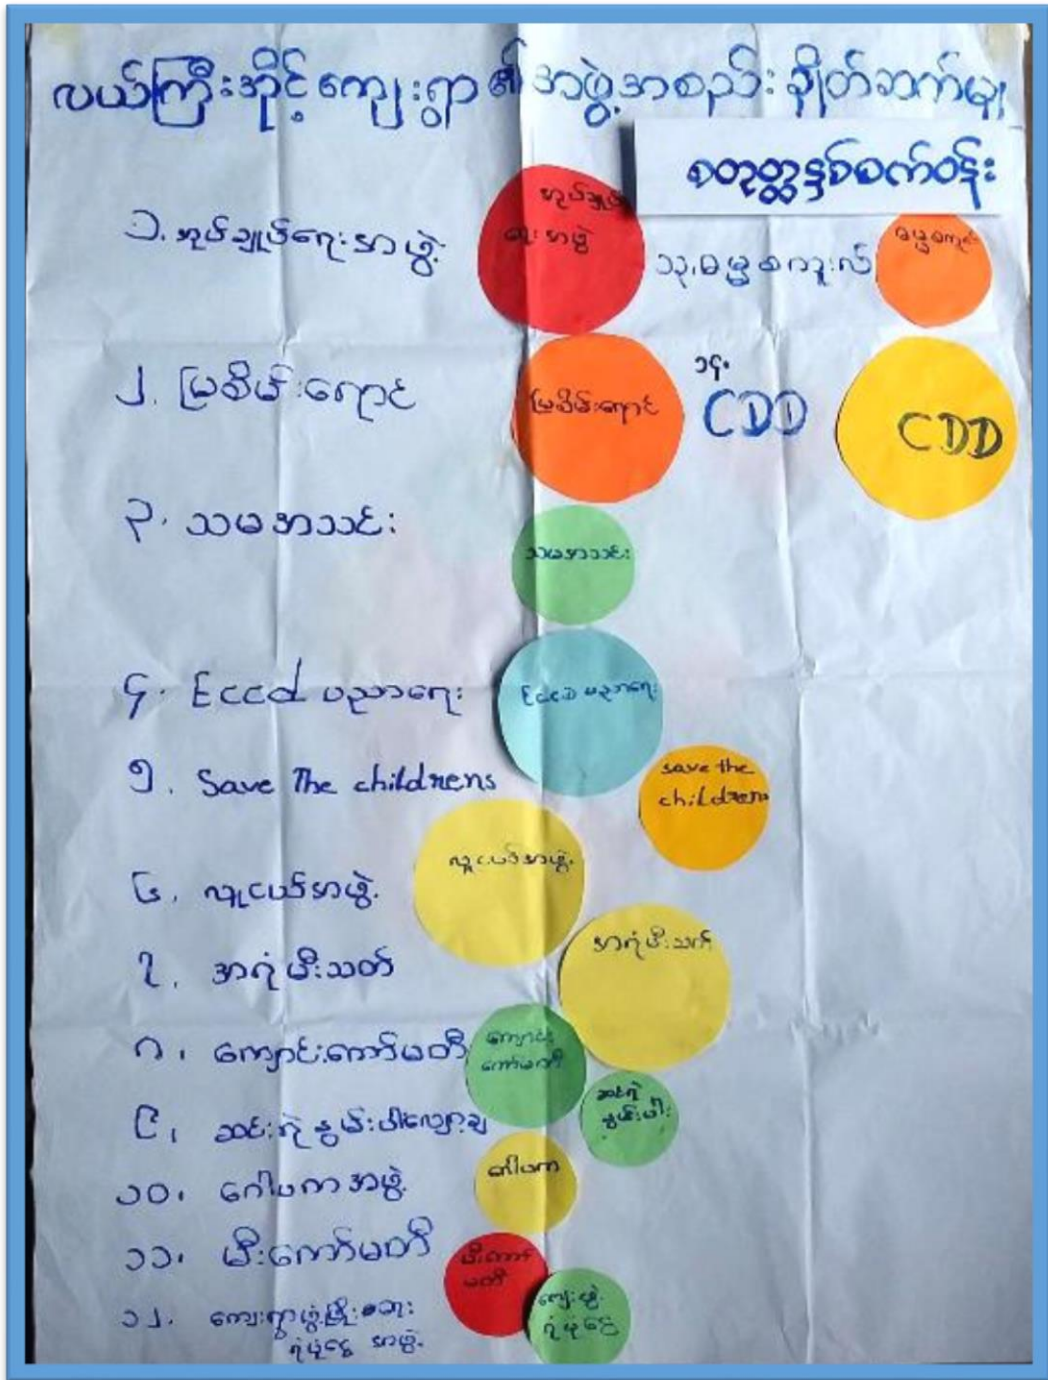 လယ်ကြီးအိုင့်ကျေးရွာ၏အဖွဲ့အစည်းချိတ်ဆက်မှု
စတုတ္ထနှစ်စက်ဝန်း
၁. အုပ်ချုပ်ရေးအဖွဲ့
အုပ်ချုပ်
ရေးအဖွဲ့
၁၃. ဓမ္မစကူးလ်
ဓမ္မစကူး
၂. မြစိမ်းရောင်
မြစိမ်းရောင်
၁၄.
CDD
CDD
၃. သမအသင်း
သမအသင်း
၄. Eccd ပညာရေး
Eccd ပညာရေး
၅. Save The childrens
save the
childrens
၆. လူငယ်အဖွဲ့
လူငယ်အဖွဲ့
၇. အရံမီးသတ်
အရံမီးသတ်
၈. ကျောင်းကော်မတီ
ကျောင်း
ကော်မတီ
၉. ဆင်းရဲနွမ်းပါးလျော့ချ
ဆင်းရဲ
နွမ်းပါး
၁၀. ဂေါပကအဖွဲ့
ဂေါပက
၁၁. မီးကော်မတီ
မီးကော်
မတီ
၁၂. ကျေးရွာဖွံ့ဖြိုး
ရံပုံငွေ အဖွဲ့
ကျေးဖွံ့
ရံပုံငွေ